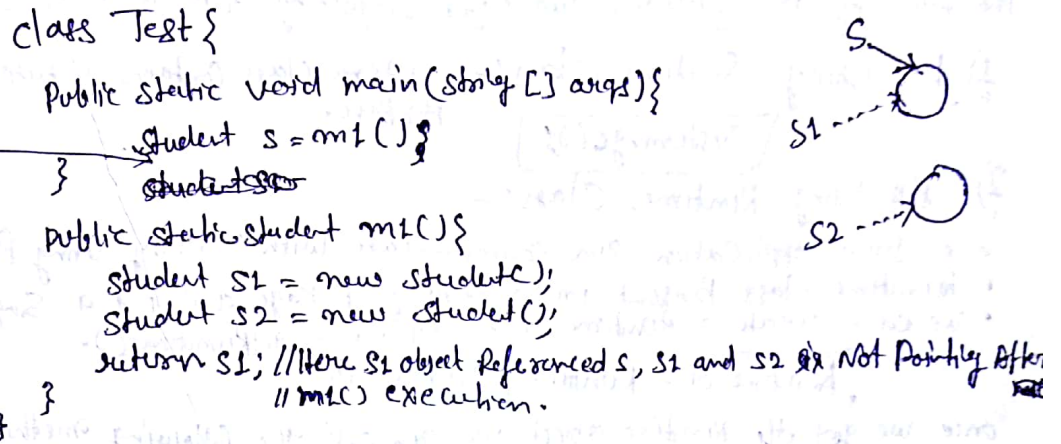 class Test {
Public static void main(String [] args){
Student s = m1();
}
public static Student m1(){
Student s1 = new Student();
Student s2 = new Student();
return s1; //Here s1 object Referenced s, s1 and s2 is Not Pointing After
} // m1() execution.
}
S
S1
S2